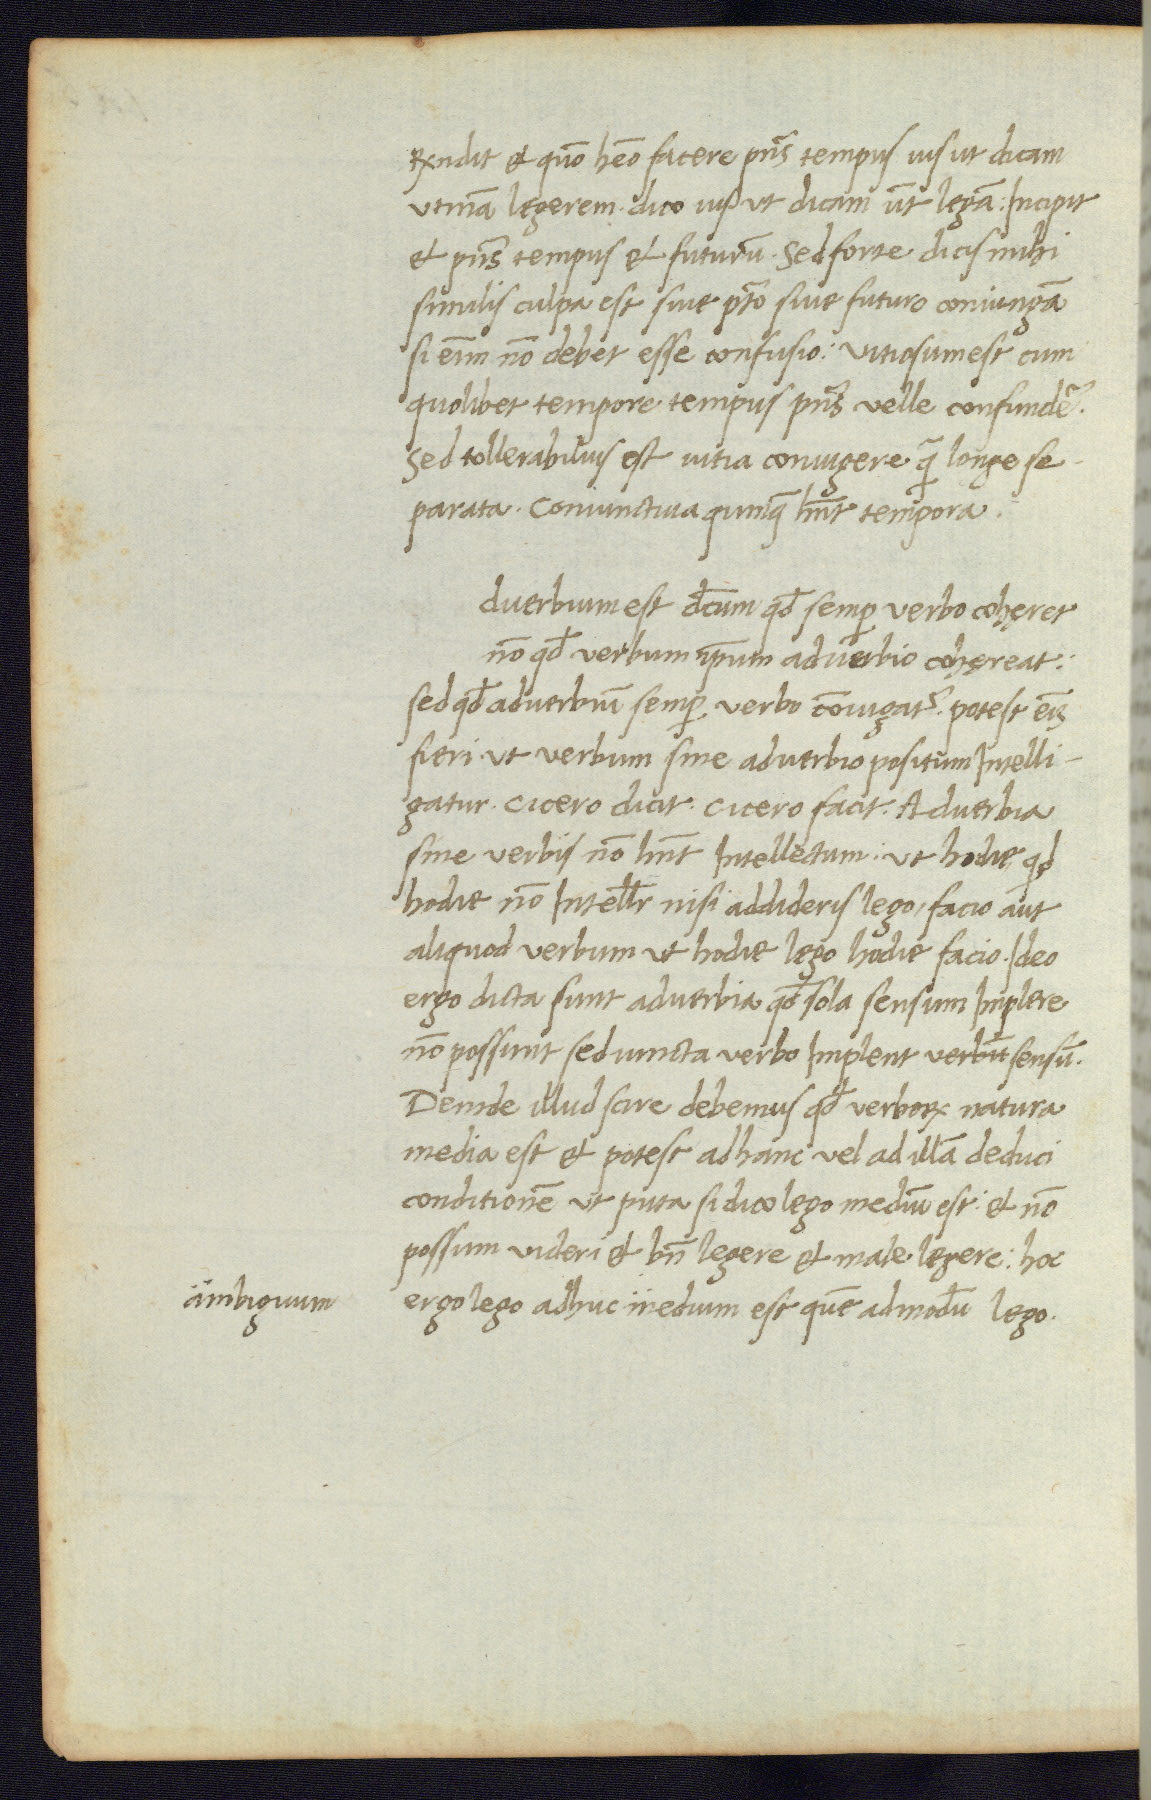 et quō hēo facere p̄ns tempus iussit dicam
utinā legerem dico iuss ut dicam ut legā: Incipit
et p̄ns tempus et futurū. Sed forte dicis mihi
similis culpa est siue p̄to siue futuro coniungā
si eīm nō debet esse confusio: Vitiosum est cum
quolibet tempore tempus p̄ns velle confundē.
Sed tollerabilius est uitia coniugere q̄ longe se-
parata. Coniunctiua quinq̄ hn̄t tempora.
duerbium est dc̄um qd̄ semp verbo coheret
nō qd̄ verbum ip̄um aduerbio cohęreat:
sed qd̄ aduerbiū semp verbo cōiugat. potest eīs
fieri ut verbum sine aduerbio positum Intelli-
gatur. Cicero dicit. Cicero facit. Aduerbia
sine verbis nō hn̄t Intellectum: ut hodie qd
hodie nō Intell̄r nisi addideris lego, facio aut
aliquod verbum ut hodie lego hodie facio. Ideo
ergo dicta sunt aduerbia qd̄ sola sensum Implere
nō possunt sed iuncta verbo Implent verbū sensū.
Deinde illud scire debemus qd̄ verboꝝ natura
media est et potest ad hanc vel ad illā deduci
conditionē ut puta si dico lego mediū est: et nō
possum uideri et bn̄ legere et male legere: hoc
ambiguum ergo lego adhuc medium est quē admodū lego.